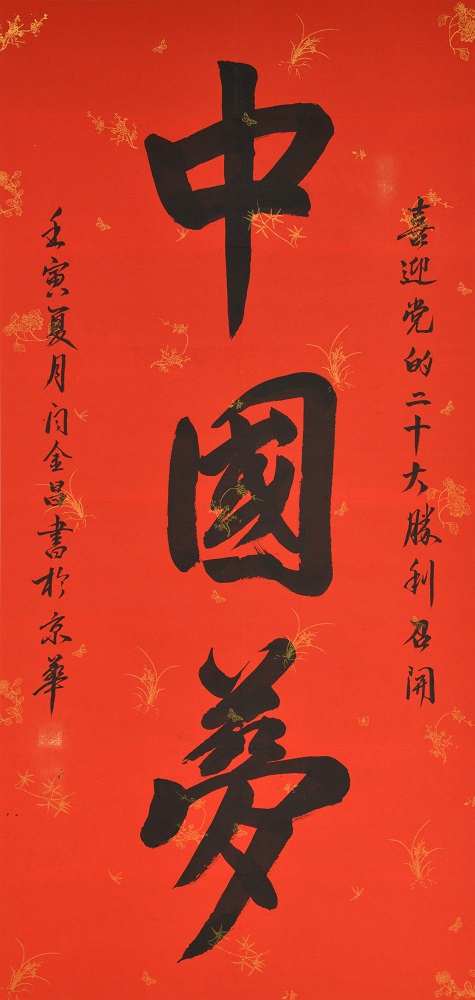 喜迎党的二十大勝利召開
中國夢
壬寅夏月闫金昌書於京華